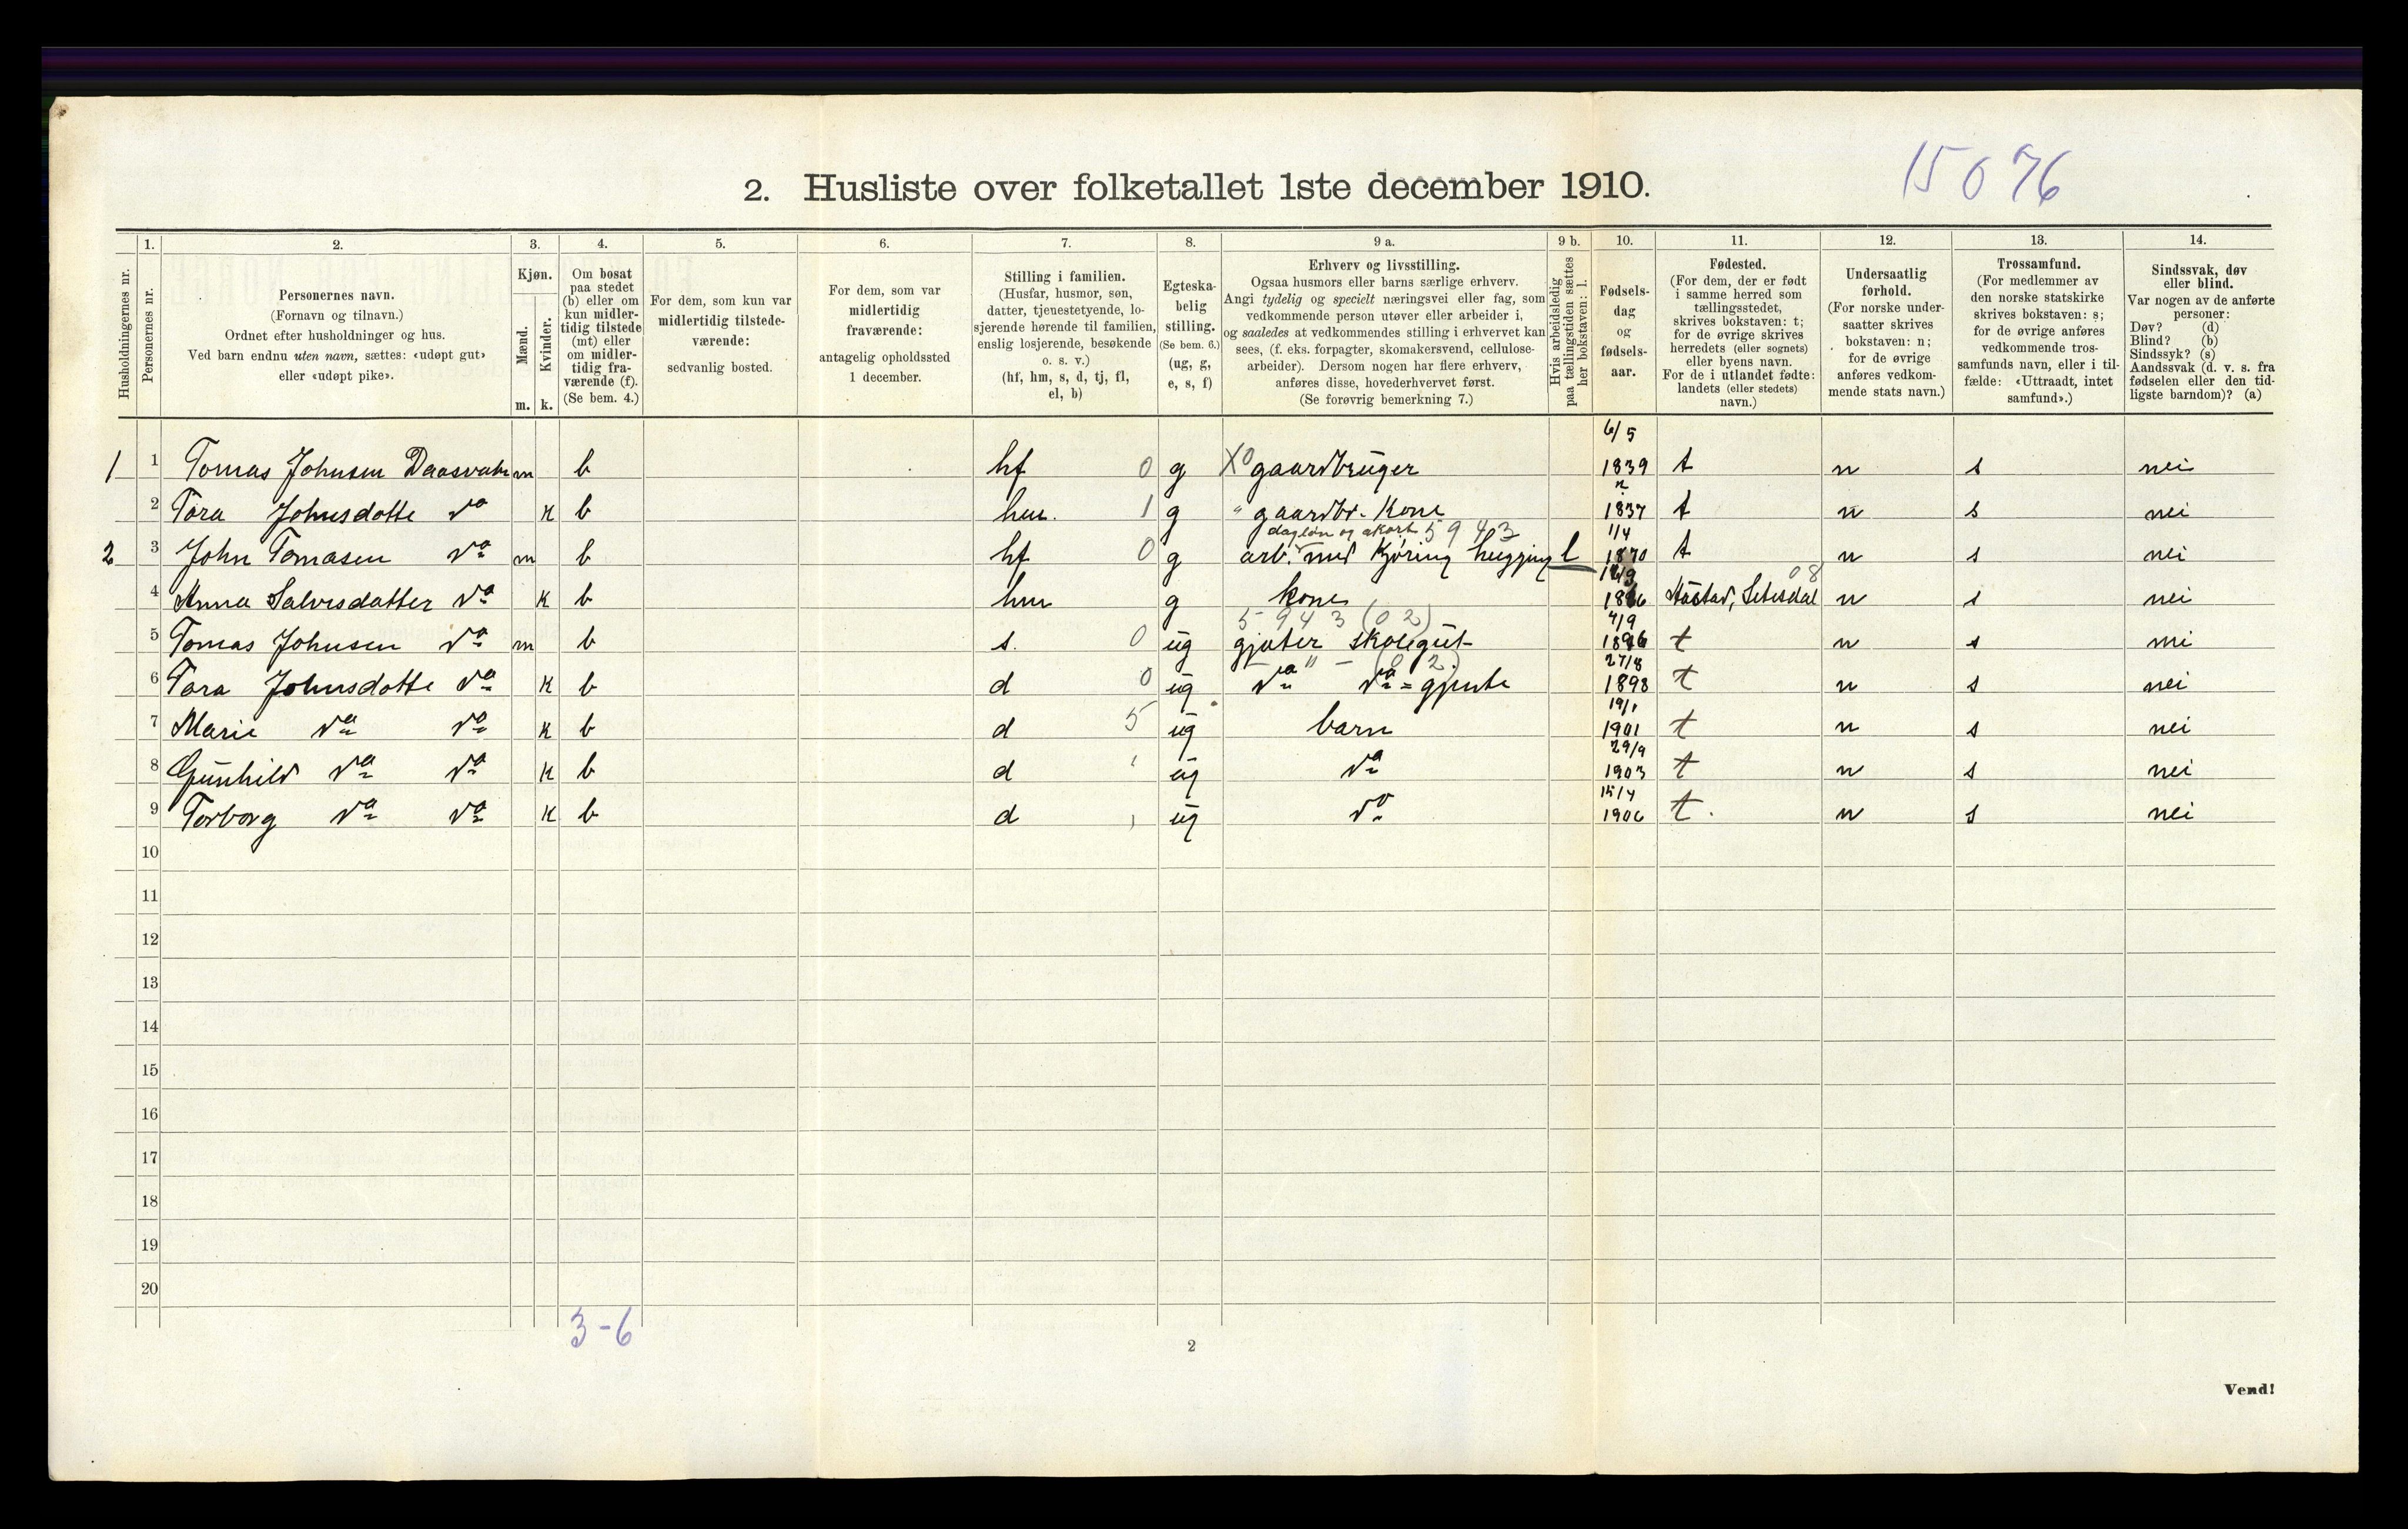 15076
2. Husliste over folketallet 1ste december 1910.
Husholdningernes nr.
1. Personernes nr.
2. Personernes navn.
(Fornavn og tilnavn.)
Ordnet efter husholdninger og hus.
Ved barn endnu uten navn, sættes: «udøpt gut»
eller «udøpt pike».
3. Kjøn.
Mænd. Kvinder.
m. k.
4. Om bosat
paa stedet
(b) eller om
kun midler-
tidig tilstede
(mt) eller
om midler-
tidig fra-
værende (f).
(Se bem. 4.)
5. For dem, som kun var
midlertidig tilstede-
værende:
sedvanlig bosted.
6. For dem, som var
midlertidig
fraværende:
antagelig opholdssted
1 december.
7. Stilling i familien.
(Husfar, husmor, søn,
datter, tjenestetyende, lo-
sjerende hørende til familien,
enslig losjerende, besøkende
o. s. v.)
(hf, hm, s, d, tj, fl,
el, b)
8. Egteska-
belig
stilling.
(Se bem. 6.)
(ug, g,
e, s, f)
9 a. Erhverv og livsstilling.
Ogsaa husmors eller barns særlige erhverv.
Angi tydelig og specielt næringsvei eller fag, som
vedkommende person utøver eller arbeider i,
og saaledes at vedkommendes stilling i erhvervet kan
sees, (f. eks. forpagter, skomakersvend, cellulose-
arbeider). Dersom nogen har flere erhverv,
anføres disse, hovederhvervet først.
(Se forøvrig bemerkning 7.)
9 b. Hvis arbeidsledig
paa tællingstiden sættes
her bokstaven: l.
10. Fødsels-
dag
og
fødsels-
aar.
11. Fødested.
(For dem, der er født
i samme herred som
tællingsstedet,
skrives bokstaven: t;
for de øvrige skrives
herredets (eller sognets)
eller byens navn.
For de i utlandet fødte:
landets (eller stedets)
navn.)
12. Undersaatlig
forhold.
(For norske under-
saatter skrives
bokstaven: n;
for de øvrige
anføres vedkom-
mende stats navn.)
13. Trossamfund.
(For medlemmer av
den norske statskirke
skrives bokstaven: s;
for de øvrige anføres
vedkommende tros-
samfunds navn, eller i til-
fælde: «Uttraadt, intet
samfund».)
14. Sindssvak, døv
eller blind.
Var nogen av de anførte
personer:
Døv? (d)
Blind? (b)
Sindssyk? (s)
Aandssvak (d. v. s. fra
fødselen eller den tid-
ligste barndom)? (a)
1 1 Tomas Johnsen Daasvatn m b hf 0 g X0 gaardbruger 6/5 1839 t n s nei
2 Tora Johnsdotte do k b hm. 1 g " gaardbr. Kone 1837 t n s nei
dagløn og akort 5943
2 3 John Tomasen do m b hf 0 g arb. med Kjøring hugging l 1/4 1870 t n s nei
08
4 Anna Salvesdatter do k b hm g kone Setesdal n s nei
5943 (02)
5 Tomas Johnsen do m b s. 0 ug gjæter skolegut 4/9 1896 t n s nei
" - (02)
6 Tora Johnsdotte do k b d 0 ug do do = gjente 27/8 1898 t n s nei
7 Marie do do k b d 5 ug barn 19/1 1901 t n s nei
8 Gunhild do do k b d ug do 29/9 1903 t n s nei
9 Torborg do do k b d ug do 15/4 1906 t. n s nei
10
11
12
13
14
15
16
17
18
19
20
3-6
2
Vend!